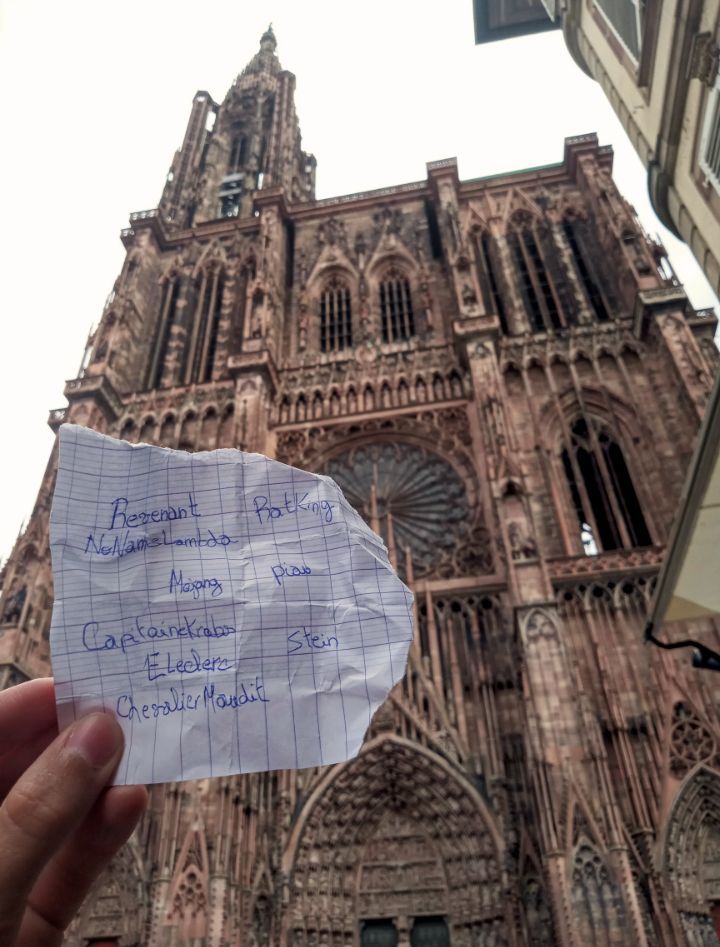 Revenant RatKing
NoNameLambda
Mojang piou
CapitaineKrabs Stein
ELeclerc
ChevalierMaudit